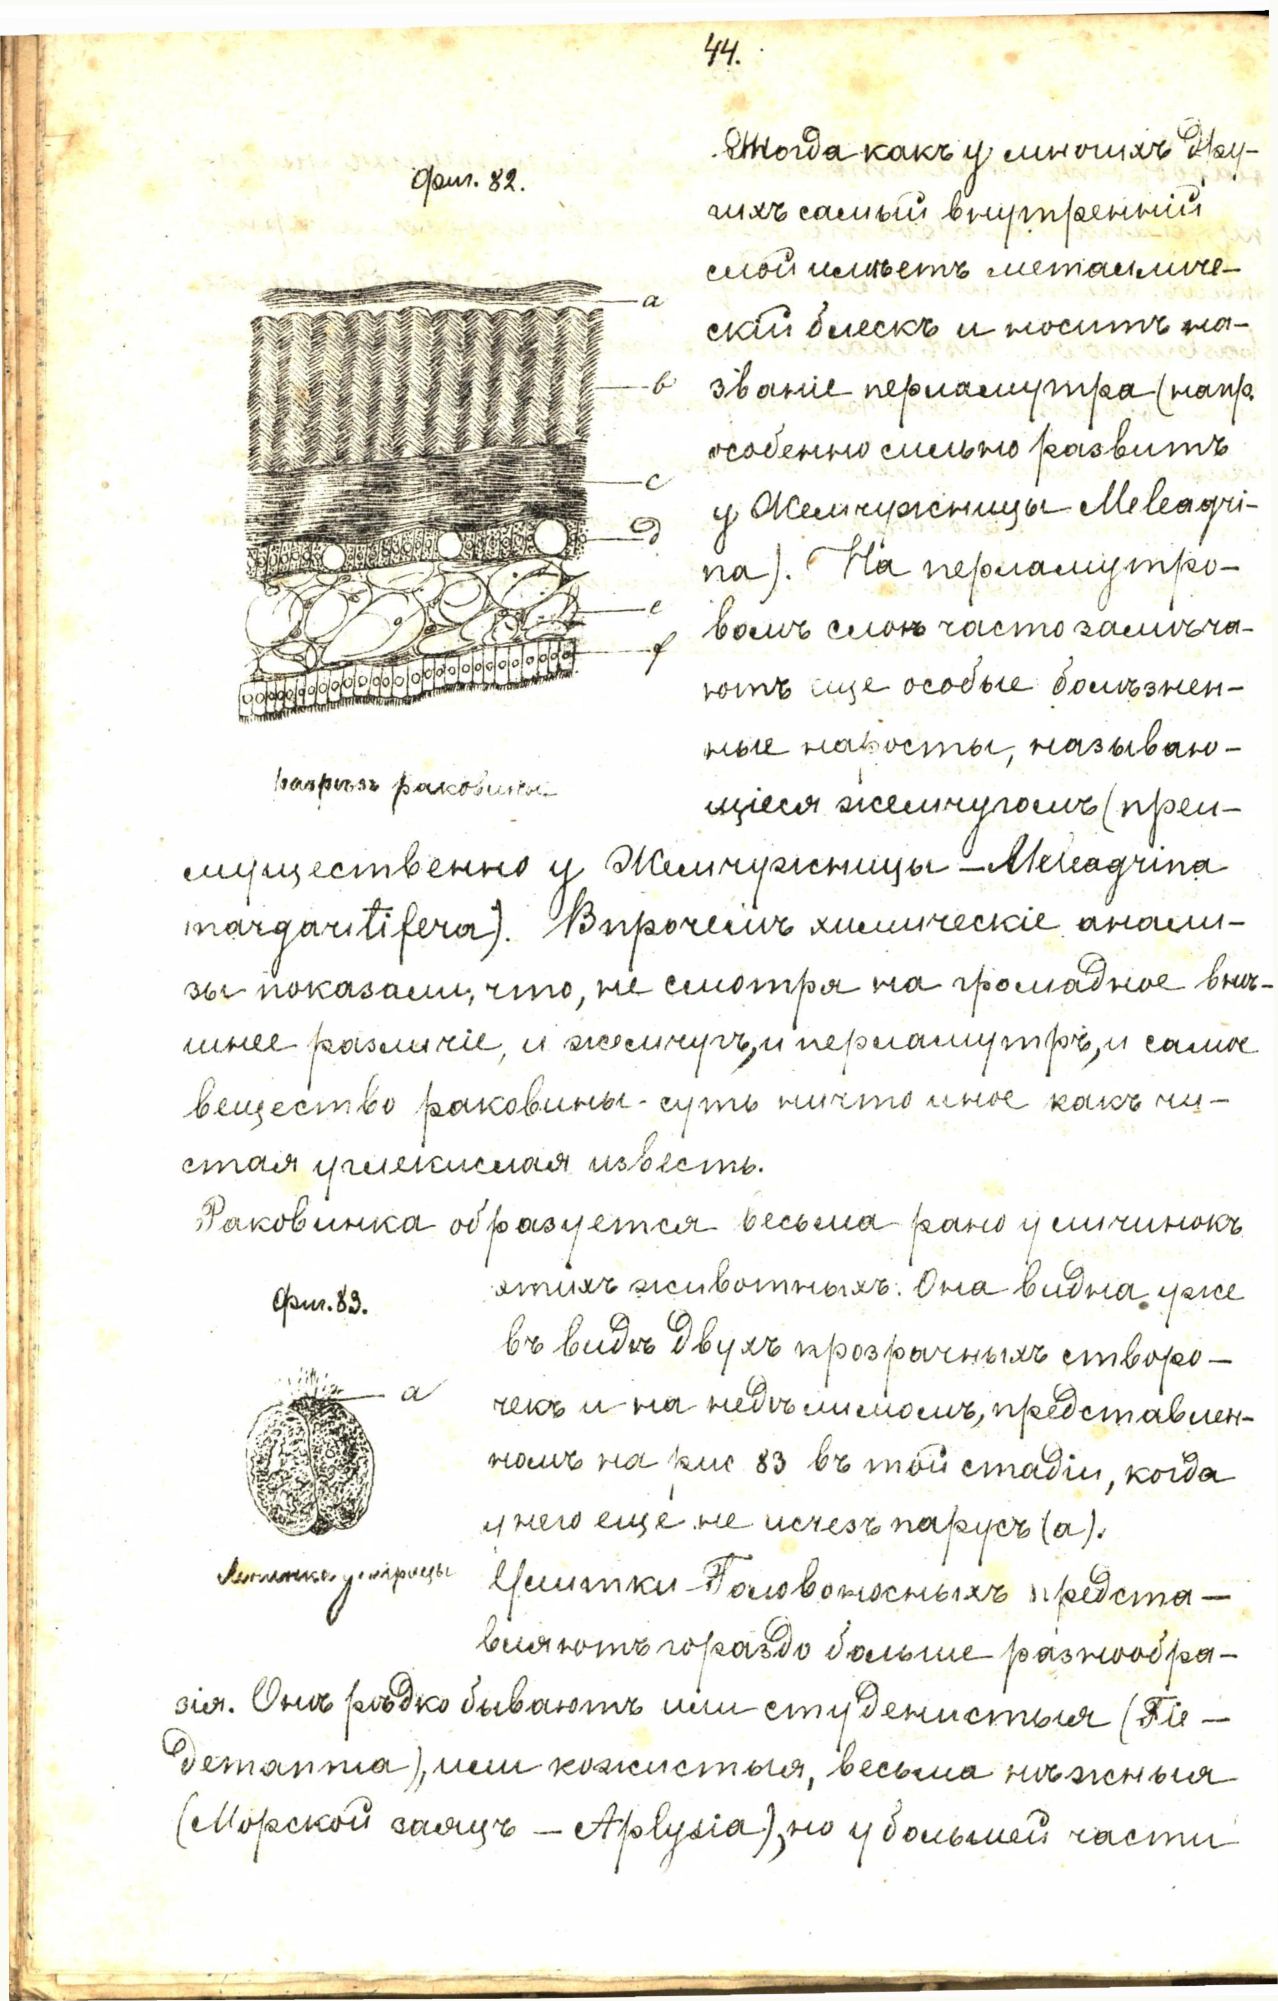 44.
Тогда какъ у многихъ дру-
Фиг. 82.
гихъ самый внутренній
слой имѣетъ металличе-
a
скій блескъ и носитъ на-
b
званіе перламутра (напр.
особенно сильно развитъ
c
у Жемчужницы Meleagri-
d
na). На перламутро-
e
вомъ слоѣ часто замѣча-
f
ютъ еще особые болѣзнен-
ные наросты, называю-
разрѣзъ раковины
щіеся жемчугомъ (преи-
мущественно у Жемчужницы – Meleagrina
margaritifera). Впрочемъ химическіе анали-
зы показали, что, не смотря на громадное внѣ-
шнее различіе, и жемчугъ, и перламутръ, и самое
вещество раковины - суть ничто иное какъ чи-
стая углекислая известь.
Раковинка образуется весьма рано у личинокъ
этихъ животныхъ. Она видна уже
Фиг. 83.
въ видѣ двухъ прозрачныхъ створо-
a
чекъ и на недѣлимомъ, представлен-
номъ на рис 83 въ той стадіи, когда
у него еще не исчезъ парусъ (a).
Личинка устрицы
Улитки Головоносныхъ предста-
вляютъ гораздо больше разнообра-
зія. Онѣ рѣдко бываютъ или студенистыя (Tie-
demannia), или кожистыя, весьма нѣжныя
(Морской заяцъ – Aplysia), но у большей части